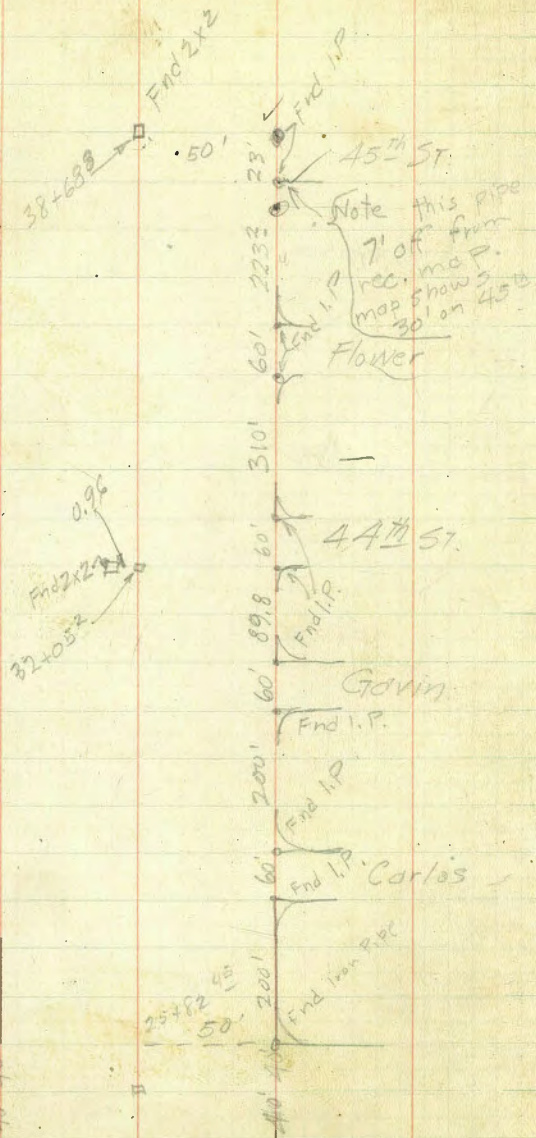 Fnd 2x2
Fnd I.P
38+68⁸
50'
23'
45th ST.
Note this pipe
7' off from
rec. map.
map shows
30' on 45th
223²
Fnd I.P
60'
Flower
310'
0.96
60'
44th ST.
Fnd 2x2
Fnd I.P.
32+05²
89.8
Fnd I.P.
60'
Gavin
Fnd I.P.
200'
Fnd I.P
60'
Fnd I.P.
Carlos
200'
Fnd Iron Pipe
25+82
50'